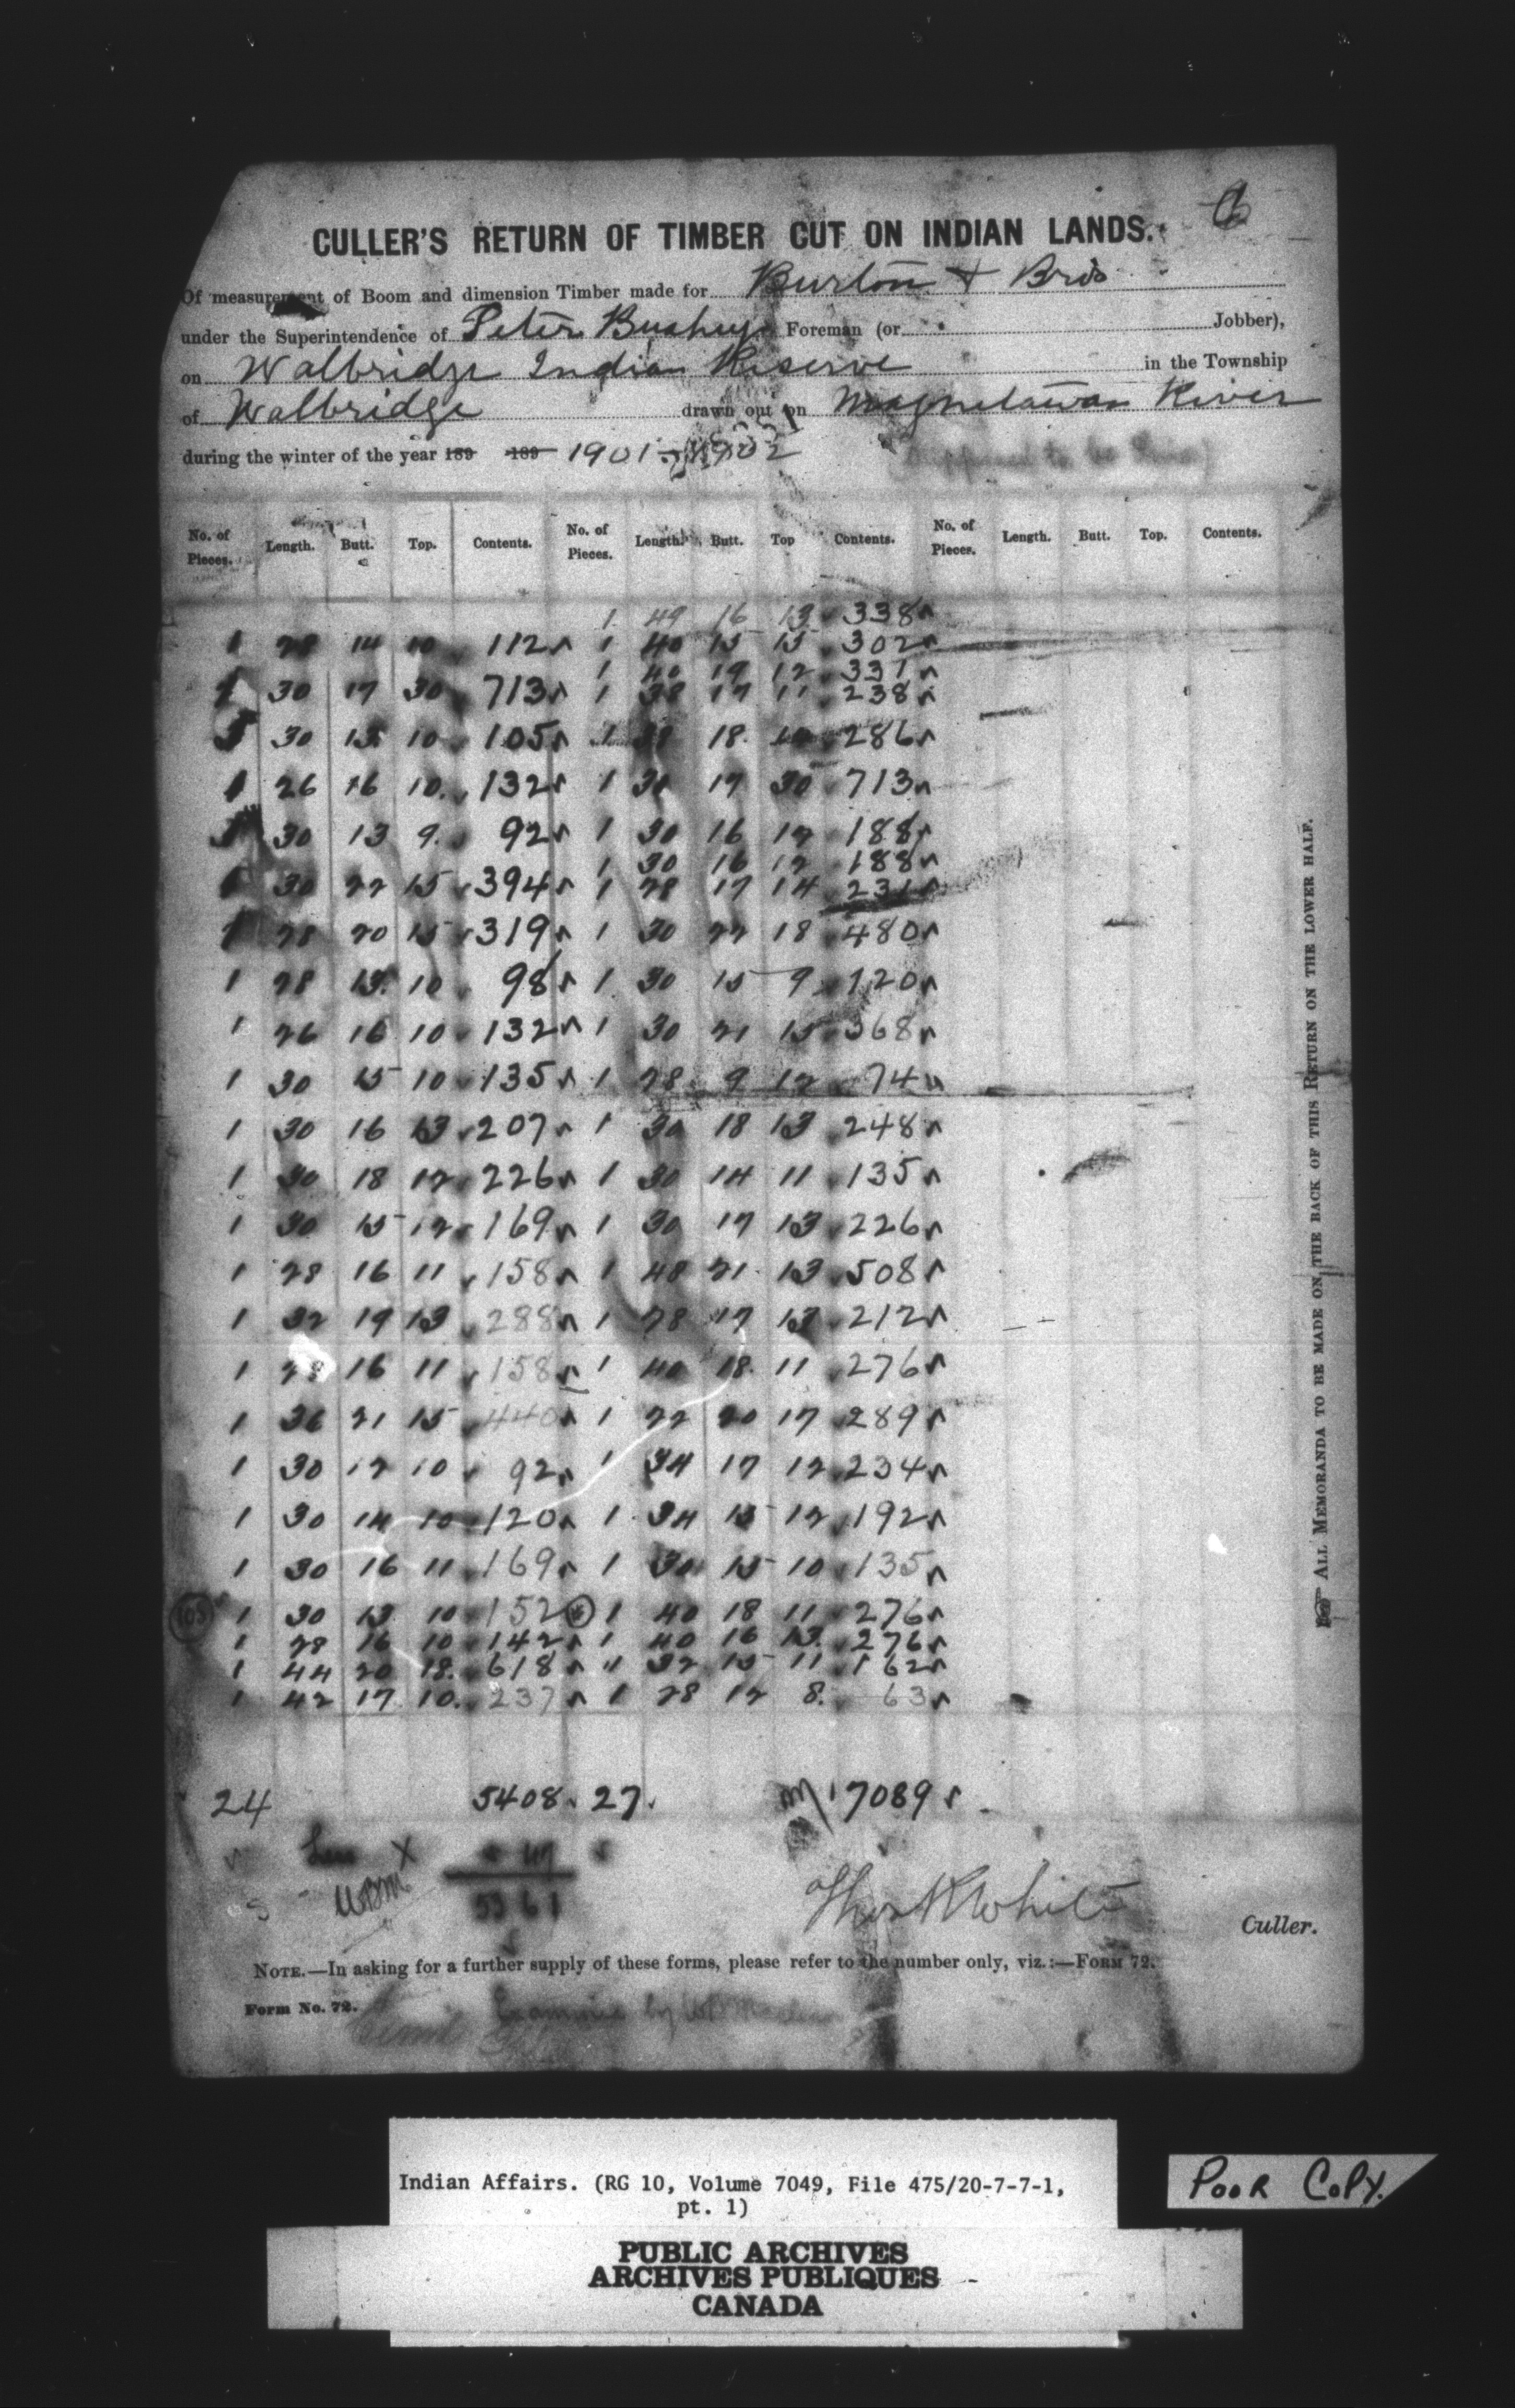 CULLER'S RETURN OF TIMBER CUT ON INDIAN LANDS.
Of measurement of Boom and dimension Timber made for Burton & Bros
under the Superintendence of Peter Foreman (or Jobber),
on Walbridge Indian Reserve in the Township
of Walbridge drawn out on Magnetawan River
during the winter of the year 189 189 1901-1902
No. of Pieces. Length. Butt. Top. Contents. No. of Pieces. Length. Butt. Top Contents. No. of Pieces. Length. Butt. Top. Contents.
1 49 16 13 338
1 28 14 10 112 1 40 15 15 302
1 40 19 12 331
1 30 17 30 713 1 38 17 11 238
30 13 10 105 1 18 286
1 26 16 10 132 1 30 17 30 713
30 13 9 92 1 30 16 12 188
1 30 16 12 188
1 30 22 15 394 1 28 17 14 231
1 28 20 15 319 1 30 22 18 480
1 28 13 10 98 1 30 15 9 120
1 26 16 10 132 1 30 21 15 368
1 30 15 10 135 1 28 9 12 74
1 30 16 13 207 1 30 18 13 248
1 30 18 12 226 1 30 14 11 135
1 30 15 12 169 1 30 17 13 226
1 28 16 11 158 1 48 21 13 508
1 32 19 13 288 1 28 17 13 212
1 28 16 11 158 1 40 18 11 276
1 36 21 15 440 1 22 20 17 289
1 30 12 10 92 1 34 17 12 234
1 30 14 10 120 1 34 15 12 192
1 30 16 11 169 1 30 15 10 135
105 1 30 13 10 152 1 40 18 11 276
1 28 16 10 142 1 40 16 13 276
1 44 20 18 618 " 32 15 11 162
1 42 17 10 237 1 28 12 8 63
24 5408 27. 7089
Less X 47
WBM 5361
Culler.
NOTE.—In asking for a further supply of these forms, please refer to the number only, viz.:—FORM 72.
Form No. 72.
Examined by
ALL MEMORANDA TO BE MADE ON THE BACK OF THIS RETURN ON THE LOWER HALF.
Indian Affairs. (RG 10, Volume 7049, File 475/20-7-7-1,
pt. 1)
POOR COPY.
PUBLIC ARCHIVES
ARCHIVES PUBLIQUES
CANADA